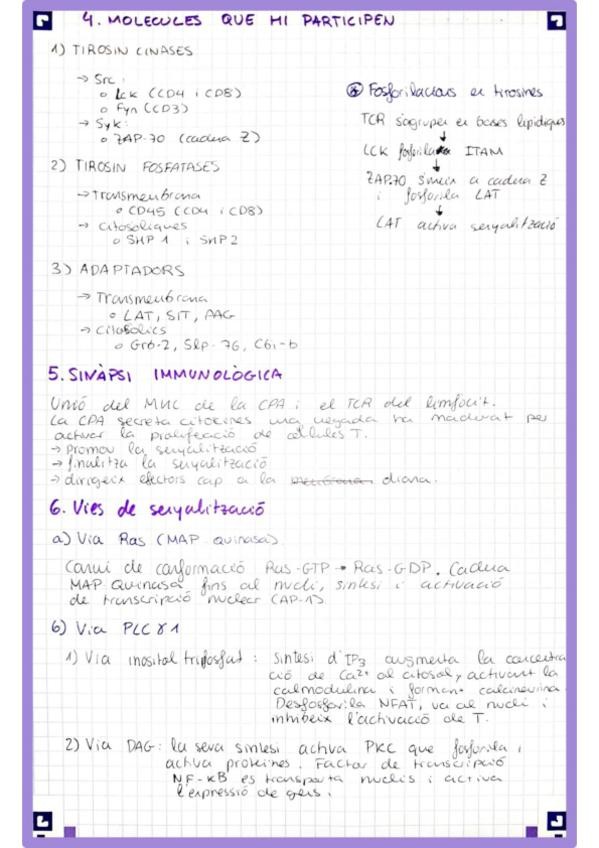 4. MOLECULES QUE HI PARTICIPEN
1) TIROSIN CINASES
→ Src:
o Lck (CD4 i CD8)
o Fyn (CD3)
→ Syk:
o ZAP-70 (cadena Z)
2) TIROSIN FOSFATASES
→ Transmembrana
o CD45 (CD4 i CD8)
→ citosoliques
o SHP 1 i SHP2
3) ADAPTADORS
→ Transmembrana
o LAT, SIT, PAG
→ citosolics
o Grb-2, Slp-76, Cbl-b
* Fosforilacions en tirosines
TCR s'agrupen en basses lipidiques
↓
LCK fosforila ITAM
↓
ZAP70 s'uneix a cadena Z
i fosforila LAT
↓
LAT activa senyalització
5. SINÀPSI IMMUNOLÒGICA
Unió del MHC de la CPA i el TCR del limfocit.
La CPA secreta citocines una vegada ha madurat per
activar la proliferació de cèl·lules T.
→ promou la senyalització
→ finalitza la senyalització
→ dirigeix efectors cap a la membrana diana.
6. Vies de senyalització
a) Via Ras (MAP quinasa)
Canvi de conformació Ras-GTP → Ras-GDP. Cadena
MAP Quinasa fins al nucli, síntesi i activació
de transcripció nuclear (AP-1).
b) Via PLCγ1
1) Via inositol trifosfat: síntesi d'IP3 augmenta la concentra
ció de Ca2+ al citosol, activant la
calmodulina i formant calcineurina.
Desfosforila NFAT, va al nucli i
inhibeix l'activació de T.
2) Via DAG: la seva síntesi activa PKC que fosforila i
activa proteïnes. Factor de transcripció
NF-κB es transporta nuclis i activa
l'expressió de gens.